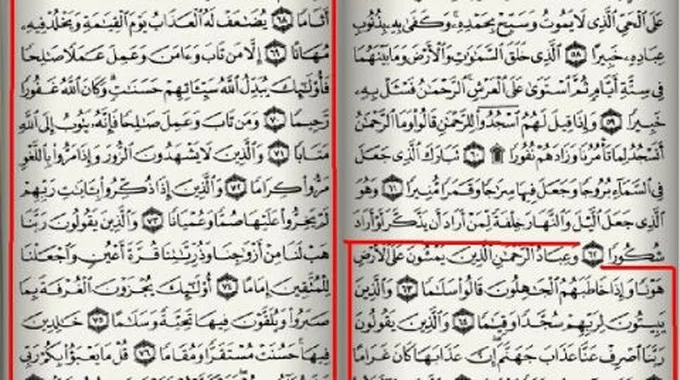 عَلَى ٱلْحَىِّ ٱلَّذِى لَا يَمُوتُ وَسَبِّحْ بِحَمْدِهِۦ ۚ وَكَفَىٰ بِهِۦ بِذُنُوبِ
عِبَادِهِۦ خَبِيرًا ٥٨ ٱلَّذِى خَلَقَ ٱلسَّمَٰوَٰتِ وَٱلْأَرْضَ وَمَا بَيْنَهُمَا
فِى سِتَّةِ أَيَّامٍ ثُمَّ ٱسْتَوَىٰ عَلَى ٱلْعَرْشِ ۚ ٱلرَّحْمَٰنُ فَسْـَٔلْ بِهِۦ
خَبِيرًا ٥٩ وَإِذَا قِيلَ لَهُمُ ٱسْجُدُوا۟ لِلرَّحْمَٰنِ قَالُوا۟ وَمَا ٱلرَّحْمَٰنُ
أَنَسْجُدُ لِمَا تَأْمُرُنَا وَزَادَهُمْ نُفُورًا ۩ ٦٠ تَبَارَكَ ٱلَّذِى جَعَلَ
فِى ٱلسَّمَآءِ بُرُوجًا وَجَعَلَ فِيهَا سِرَٰجًا وَقَمَرًا مُّنِيرًا ٦١ وَهُوَ
ٱلَّذِى جَعَلَ ٱلَّيْلَ وَٱلنَّهَارَ خِلْفَةً لِّمَنْ أَرَادَ أَن يَذَّكَّرَ أَوْ أَرَادَ
شُكُورًا ٦٢ وَعِبَادُ ٱلرَّحْمَٰنِ ٱلَّذِينَ يَمْشُونَ عَلَى ٱلْأَرْضِ
هَوْنًا وَإِذَا خَاطَبَهُمُ ٱلْجَٰهِلُونَ قَالُوا۟ سَلَٰمًا ٦٣ وَٱلَّذِينَ
يَبِيتُونَ لِرَبِّهِمْ سُجَّدًا وَقِيَٰمًا ٦٤ وَٱلَّذِينَ يَقُولُونَ
رَبَّنَا ٱصْرِفْ عَنَّا عَذَابَ جَهَنَّمَ ۖ إِنَّ عَذَابَهَا كَانَ غَرَامًا
أَثَامًا ٦٨ يُضَٰعَفْ لَهُ ٱلْعَذَابُ يَوْمَ ٱلْقِيَٰمَةِ وَيَخْلُدْ فِيهِۦ
مُهَانًا ٦٩ إِلَّا مَن تَابَ وَءَامَنَ وَعَمِلَ عَمَلًا صَٰلِحًا
فَأُو۟لَٰٓئِكَ يُبَدِّلُ ٱللَّهُ سَيِّـَٔاتِهِمْ حَسَنَٰتٍ ۗ وَكَانَ ٱللَّهُ غَفُورًا
رَّحِيمًا ٧٠ وَمَن تَابَ وَعَمِلَ صَٰلِحًا فَإِنَّهُۥ يَتُوبُ إِلَى ٱللَّهِ
مَتَابًا ٧١ وَٱلَّذِينَ لَا يَشْهَدُونَ ٱلزُّورَ وَإِذَا مَرُّوا۟ بِٱللَّغْوِ
مَرُّوا۟ كِرَامًا ٧٢ وَٱلَّذِينَ إِذَا ذُكِّرُوا۟ بِـَٔايَٰتِ رَبِّهِمْ
لَمْ يَخِرُّوا۟ عَلَيْهَا صُمًّا وَعُمْيَانًا ٧٣ وَٱلَّذِينَ يَقُولُونَ رَبَّنَا
هَبْ لَنَا مِنْ أَزْوَٰجِنَا وَذُرِّيَّٰتِنَا قُرَّةَ أَعْيُنٍ وَٱجْعَلْنَا
لِلْمُتَّقِينَ إِمَامًا ٧٤ أُو۟لَٰٓئِكَ يُجْزَوْنَ ٱلْغُرْفَةَ بِمَا
صَبَرُوا۟ وَيُلَقَّوْنَ فِيهَا تَحِيَّةً وَسَلَٰمًا ٧٥ خَٰلِدِينَ
فِيهَا ۚ حَسُنَتْ مُسْتَقَرًّا وَمُقَامًا ٧٦ قُلْ مَا يَعْبَؤُا۟ بِكُمْ رَبِّى